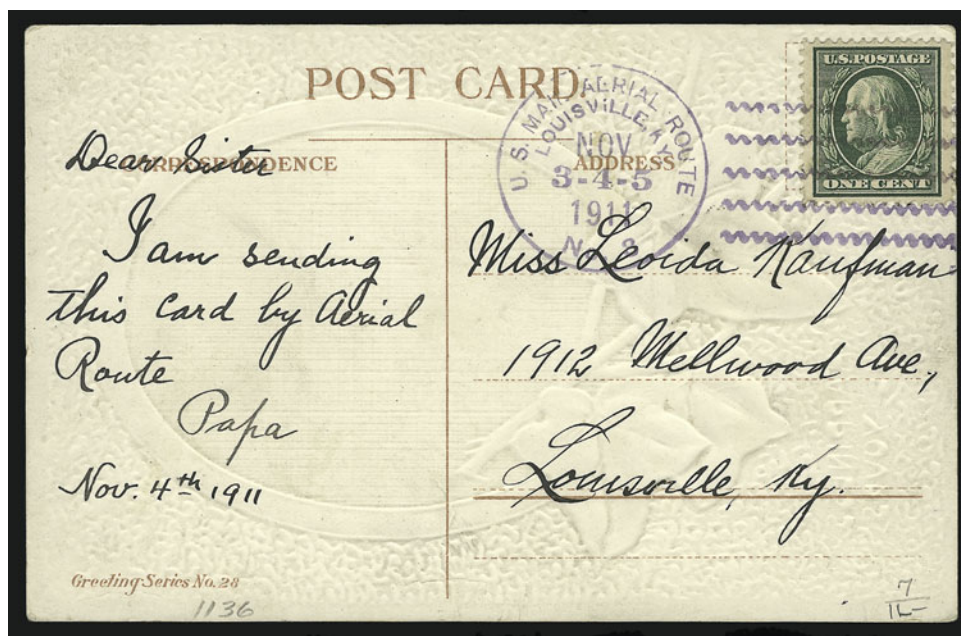 POST CARD.
U.S. MAIL AERIAL ROUTE
LOUISVILLE, KY.
NOV
3-4-5
1911
U.S. POSTAGE
ONE CENT
CORRESPONDENCE
ADDRESS
Dear Sister
I am sending
this card by Aerial
Route
Papa
Nov. 4th 1911
Miss Leoida Kaufman
1912 Mellwood Ave,
Louisville, Ky.
Greeting Series No. 28
1136
7